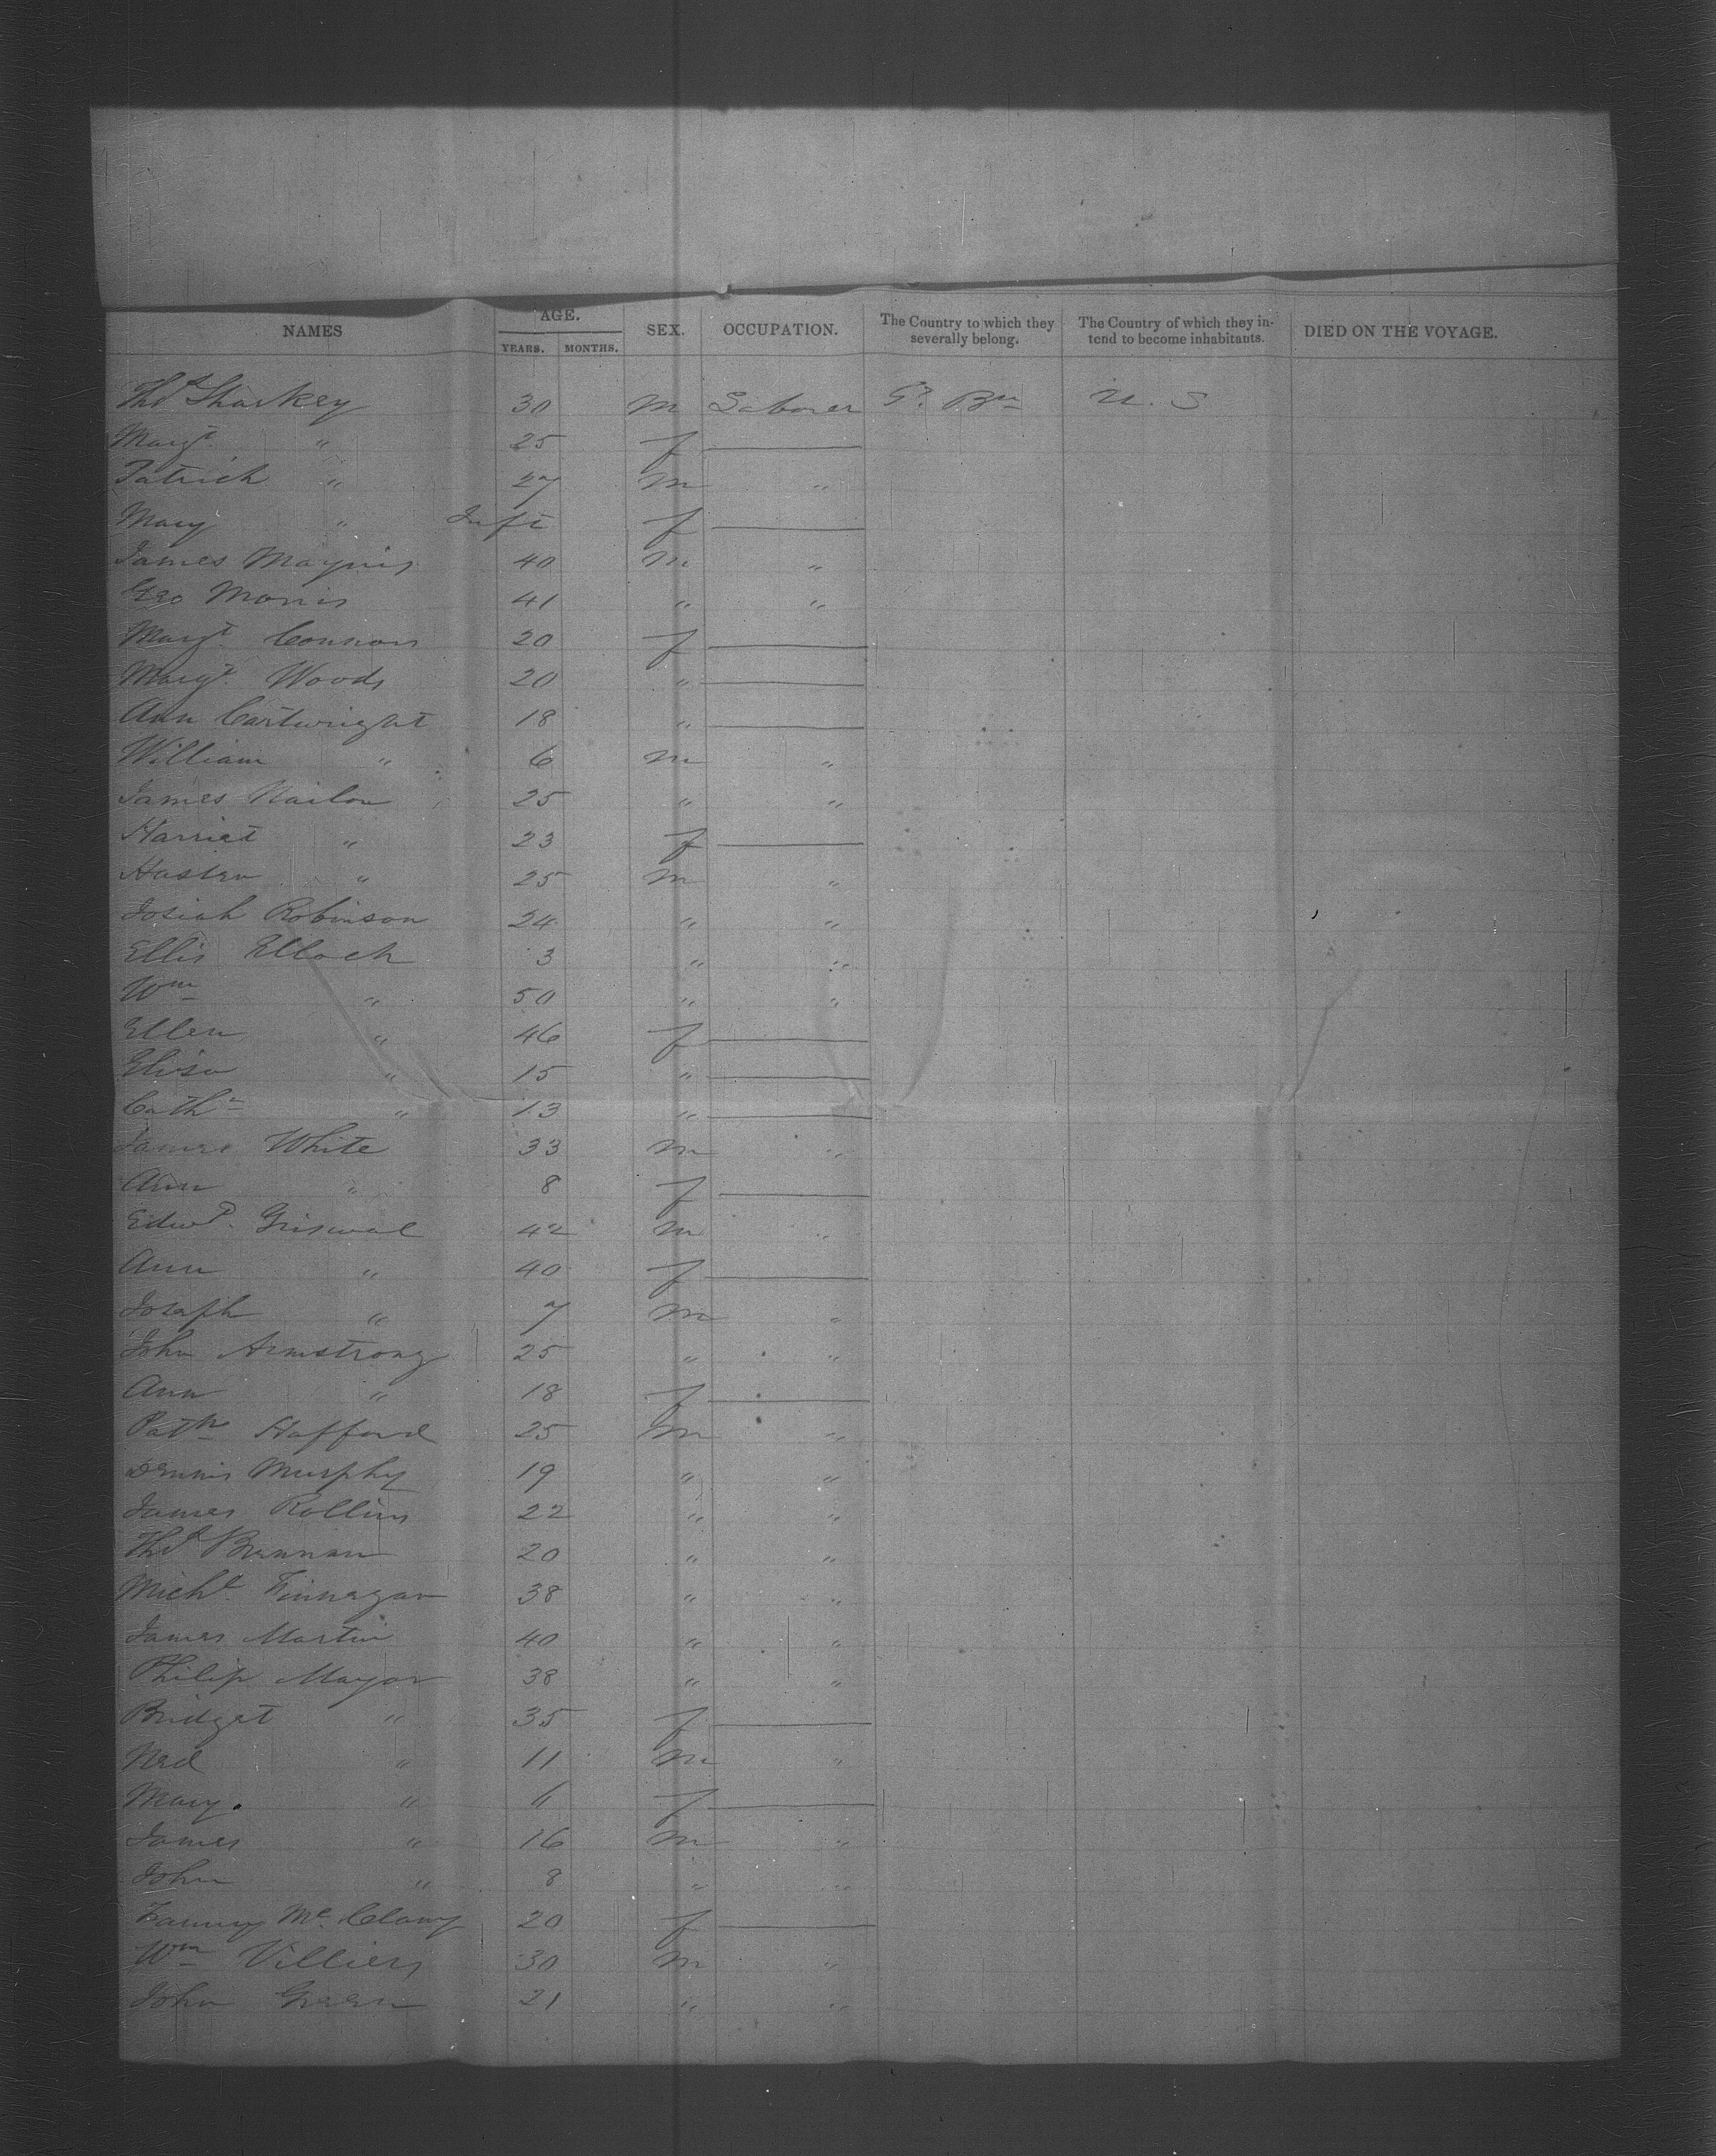 NAMES AGE. YEARS. MONTHS. SEX. OCCUPATION. The Country to which they severally belong. The Country of which they intend to become inhabitants. DIED ON THE VOYAGE.
Thos Sharkey 30 m Laborer Gt. Bn U. S
Margt " 25 f
Patrick " 27 m "
Mary " Inft f
James Maginis 40 m "
Geo Morris 41 " "
Margt Connors 20 f
Margt. Woods 20 "
Ann Cartwright 18 "
William " 6 m "
James Nailon 25 " "
Harriet " 23 f
" 25 m "
Josiah Robinson 24 " "
Ellis Ellock 3 " "
Wm " 50 " "
Ellen " 46 f
Eliza " 15 "
Cathe " 13 "
James White 33 m "
Ann " 8 f
Edwd. Griswal 42 m "
Ann " 40 f
Joseph " 7 m "
John Armstrong 25 " "
Ann " 18 f
Patk Hafford 25 m "
Dennis Murphy 19 " "
James Rollins 22 " "
Thos Brennan 20 " "
Michl. Finnegan 38 " "
James Martin 40 " "
Philip Mayor 38 " "
Bridget " 35 f
Ned " 11 m "
Mary. " f
James " 16 m "
John " 8 " "
Fanny Mc Clany 20 f
Wm Villiers 30 m "
John Green 21 " "